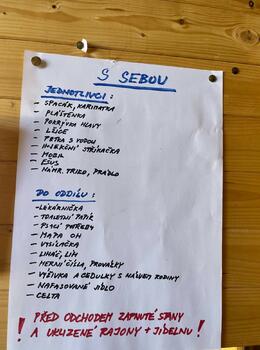 S SEBOU
JEDNOTLIVCI:
- SPACÁK, KARIMATKA
- PLÁŠTĚNKA
- POKRÝVKA HLAVY
- LŽÍCE
- PETKA S VODOU
- INJEKČNÍ STŘÍKAČKA
- MOBIL
- EŠUS
- NÁHR. TRIKO, PRÁDLO
DO ODDÍLU:
- LÉKÁRNIČKA
- TOALETNÍ PAPÍR
- PSACÍ POTŘEBY
- MAPA OH
- VYSÍLAČKA
- LIHÁČ, LÍH
- HERNÍ ČÍSLA, PROVÁZKY
- VÝŠIVKA A CEDULKY S NÁZVEM RODINY
- NAFASOVANÉ JÍDLO
- CELTA
! PŘED ODCHODEM ZAPNUTÉ STANY
A UKLIZENÉ RAJONY + JÍDELNU !